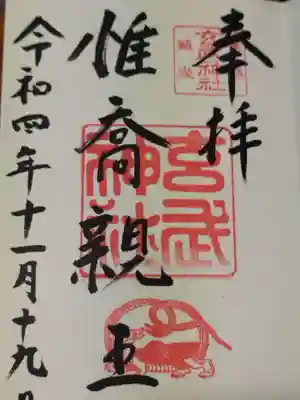 奉拝
惟喬親王
宮武神社
令和四年十一月十九日